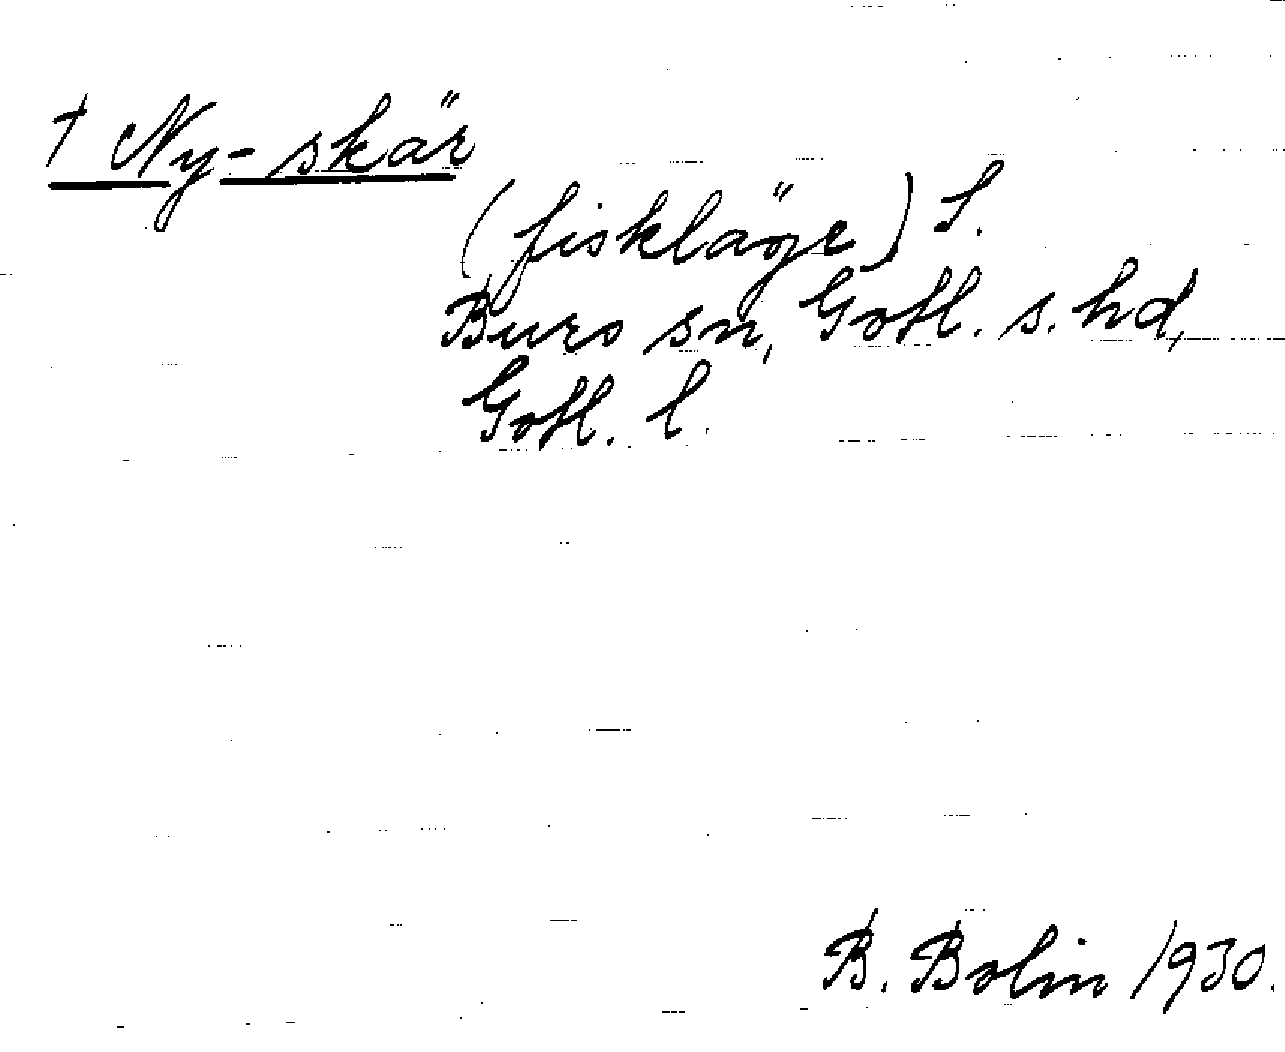 † Ny-skär
(fiskläge) S.
Burs sn, Gotl. s. hd,
Gotl. l.
B. Bolin 1930.